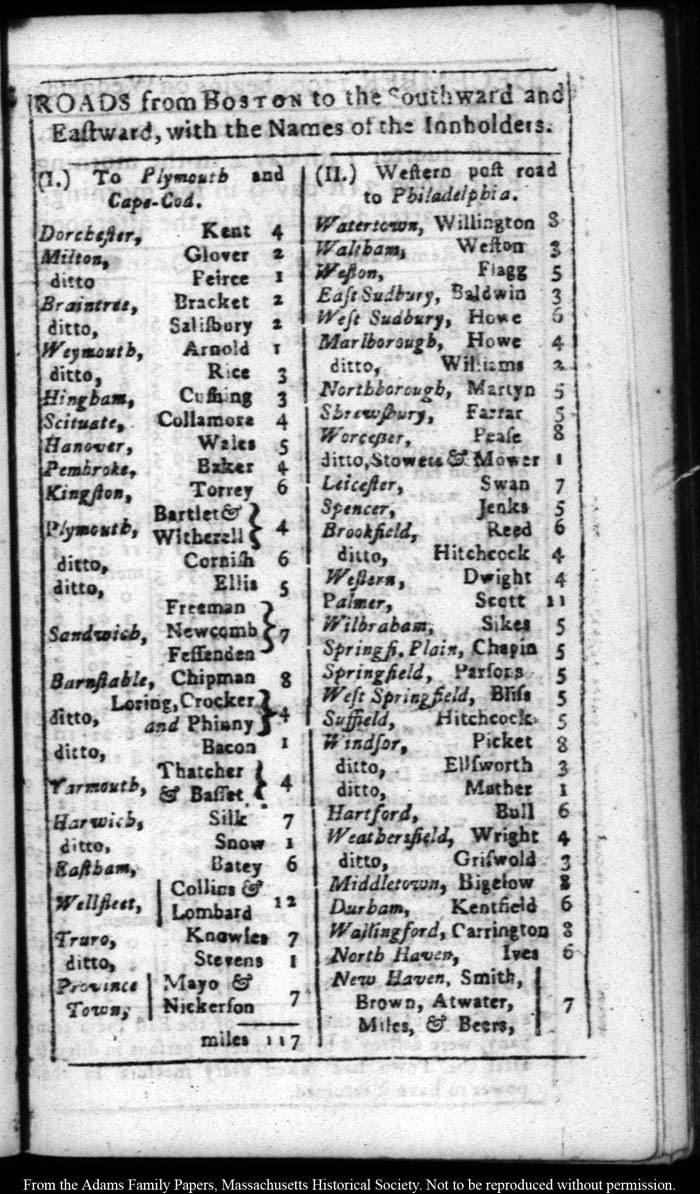 ROADS from BOSTON to the Southward and
Eaſtward, with the Names of the Innholders.
(I.) To Plymouth and
Cape-Cod.
Dorcheſter, Kent 4
Milton, Glover 2
ditto Feirce 1
Braintree, Bracket 2
ditto, Saliſbury 2
Weymouth, Arnold 1
ditto, Rice 3
Hingham, Cuſhing 3
Scituate, Collamore 4
Hanover, Wales 5
Pembroke, Baker 4
Kingſton, Torrey 6
Plymouth, Bartlet &
Witherell 4
ditto, Corniſh 6
ditto, Ellis 5
Freeman
Sandwich, Newcomb 7
Feſſenden
Barnſtable, Chipman 8
Loring, Crocker
ditto, and Phinny 4
ditto, Bacon 1
Thatcher
Yarmouth, & Baſſet 4
Harwich, Silk 7
ditto, Snow 1
Eaſtham, Batey 6
Collins &
Wellfleet, Lombard 12
Truro, Knowles 7
ditto, Stevens 1
Province Mayo &
Town, Nickerſon 7
miles 117
(II.) Weſtern poſt road
to Philadelphia.
Watertown, Willington 8
Waltham, Weſton 3
Weſton, Flagg 5
Eaſt Sudbury, Baldwin 3
Weſt Sudbury, Howe 6
Marlborough, Howe 4
ditto, Williams 2
Northborough, Martyn 5
Shrewſbury, Farrar 5
Worceſter, Peaſe 8
ditto, Stowers & Mower 1
Leiceſter, Swan 7
Spencer, Jenks 5
Brookfield, Reed 6
ditto, Hitchcock 4
Weſtern, Dwight 4
Palmer, Scott 11
Wilbraham, Sikes 5
Springfi. Plain, Chapin 5
Springfield, Parſons 5
Weſt Springfield, Bliſs 5
Suffield, Hitchcock 5
Windſor, Picket 8
ditto, Ellſworth 3
ditto, Mather 1
Hartford, Bull 6
Weathersfield, Wright 4
ditto, Griſwold 3
Middletown, Bigelow 8
Durham, Kentfield 6
Wallingford, Carrington 8
North Haven, Ives 6
New Haven, Smith,
Brown, Atwater, 7
Miles, & Beers,
From the Adams Family Papers, Massachusetts Historical Society. Not to be reproduced without permission.